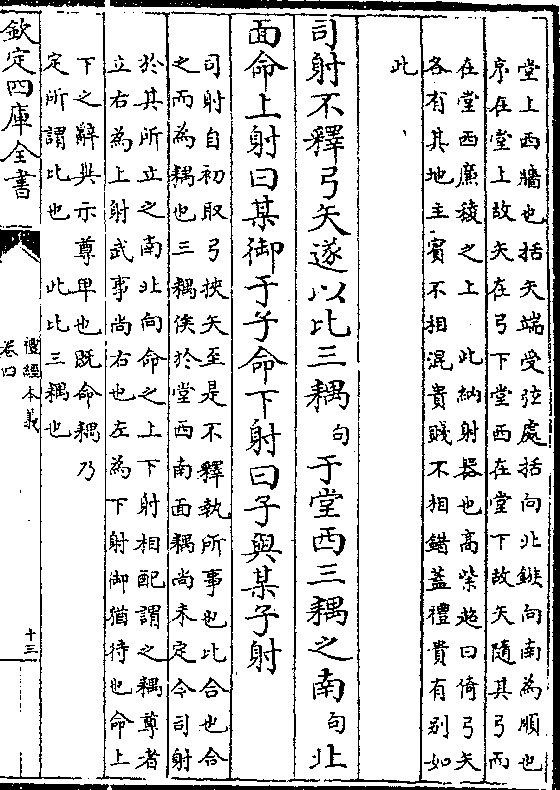 堂上西牆也括矢端受弦處括向北鏃向南為順也
序在堂上故矢在弓下堂西在堂下故矢隨其弓而
在堂西廉稜之上　此納射器也高紫超曰倚弓矢
各有其地主賓不相混貴賤不相錯蓋禮貴有别如
此
司射不釋弓矢遂以比三耦句于堂西三耦之南句北
面命上射曰某御于子命下射曰子與某子射
司射自初取弓挾矢至是不釋執所事也比合也合
之而為耦也三耦俟於堂西南面耦尚未定今司射
於其所立之南北向命之上下射相配謂之耦尊者
立右為上射武事尚右也左為下射御猶待也命上
下之辭與示尊卑也既命耦乃
定所謂比也　此比三耦也
欽定四庫全書
禮經本義
卷四
十三